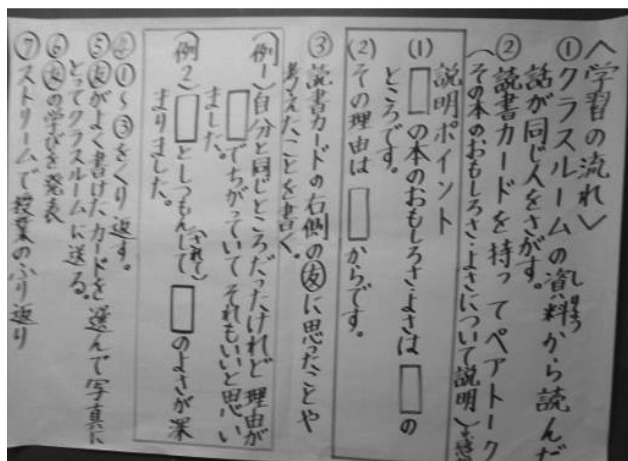 〈学習の流れ〉
①クラスルームの資料から読んだ
しりょう
話が同じ人をさがす。
②読書カードを持ってペアトーク
(その本のおもしろさよさについて説明)
説明ポイント
(1)□の本のおもしろさよさは□の
ところです。
(2)その理由は□からです。
③読書カードの右側の友に思ったことや
考えたことを書く。
(例1)自分と同じところだったけれど理由が
□でちがっていてそれもいいと思い
ました。
(されて)
(例2)□としつもんして□のよさが深
まりました。
④①～③をくり返す。
⑤友がよく書けたカードを選んで写真に
とってクラスルームに送る。
⑥友の学びを発表
⑦ストリームで授業のふり返り